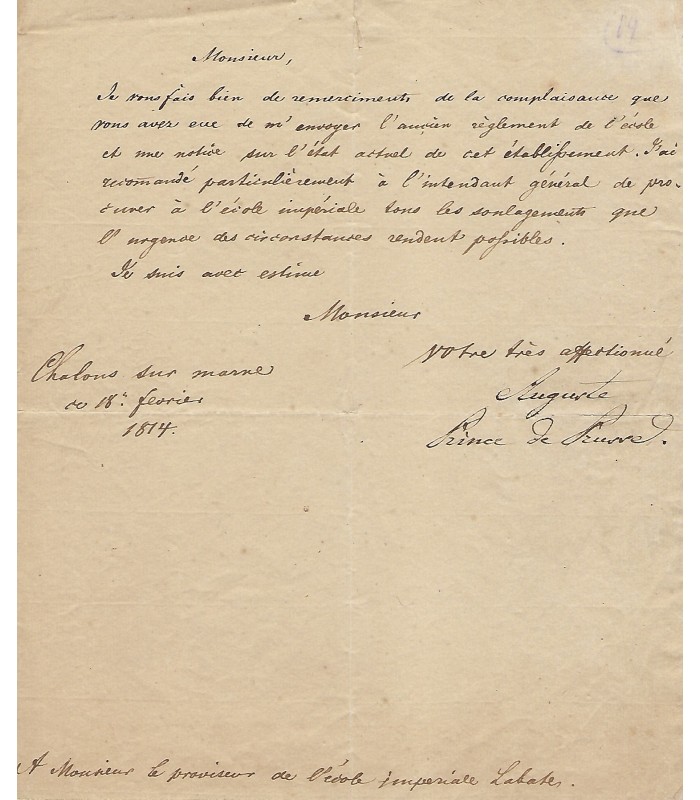 19
Monsieur,
Je vous fais bien de remerciments de la complaisance que
vous avez eue de m'envoyer l'ancien règlement de l'école
et une notice sur l'état actuel de cet établissement. J'ai
recomandé particulièrement à l'intendant général de pro-
curer à l'école impériale tous les soulagements que
l'urgence des circonstances rendent possibles.
Je suis avec estime
Monsieur
Votre très affectionné
Auguste
Prince de Prusse.
Chalons sur marne
ce 18. fevrier
1814.
A Monsieur le proviseur de l'école imperiale Labate.